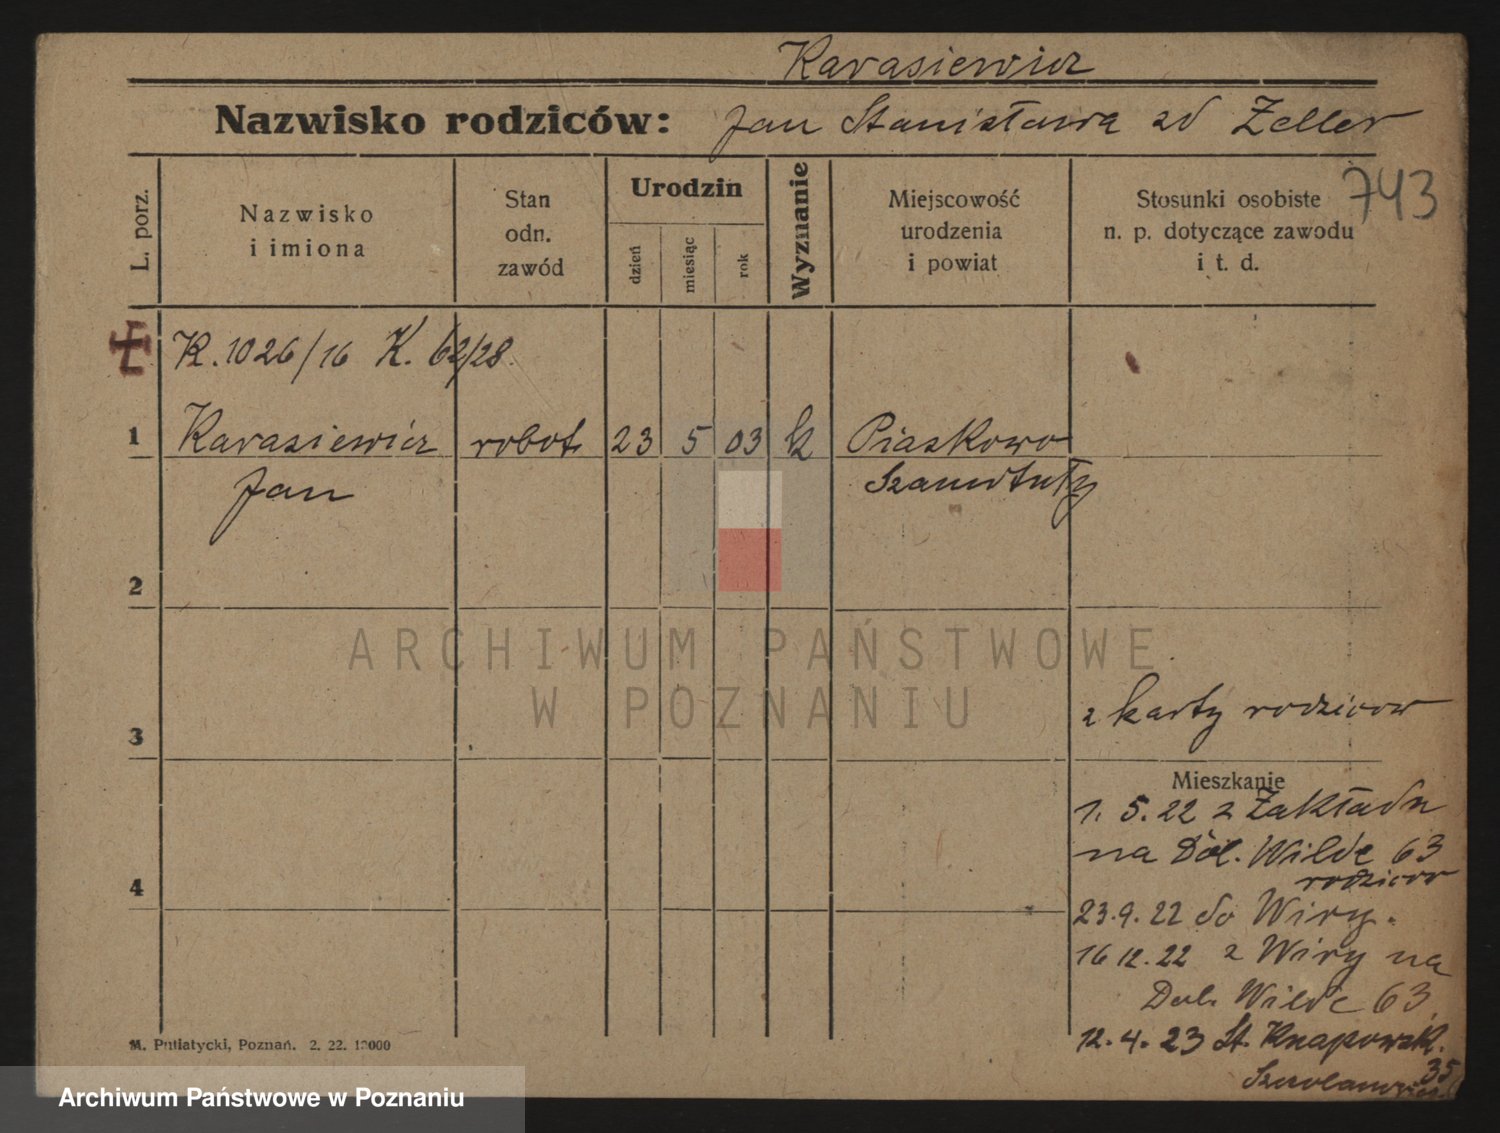 Karasiewicz
Nazwisko rodziców: Jan Stanisława zd Zeller
743
L. porz.
Nazwisko
i imiona
Stan
odn.
zawód
Urodzin
dzień
miesiąc
rok
Wyznanie
Miejscowość
urodzenia
i powiat
Stosunki osobiste
n. p. dotyczące zawodu
i t. d.
K. 1026/16 K. 62/28
1 Karasiewicz robot. 23 5 03 k Piaskowo
Jan Szamotuły
2
ARCHIWUM PAŃSTWOWE
W POZNANIU
z karty rodziców
3
Mieszkanie
1. 5. 22 z Zakładu
na Dol. Wilde 63
rodziców
4
23. 9. 22 do Wiry.
16 12. 22 z Wiry na
Dol. Wilde 63
12. 4. 23 St. Knapowsk.
35
M. Putiatycki, Poznań. 2. 22. 12000
Archiwum Państwowe w Poznaniu